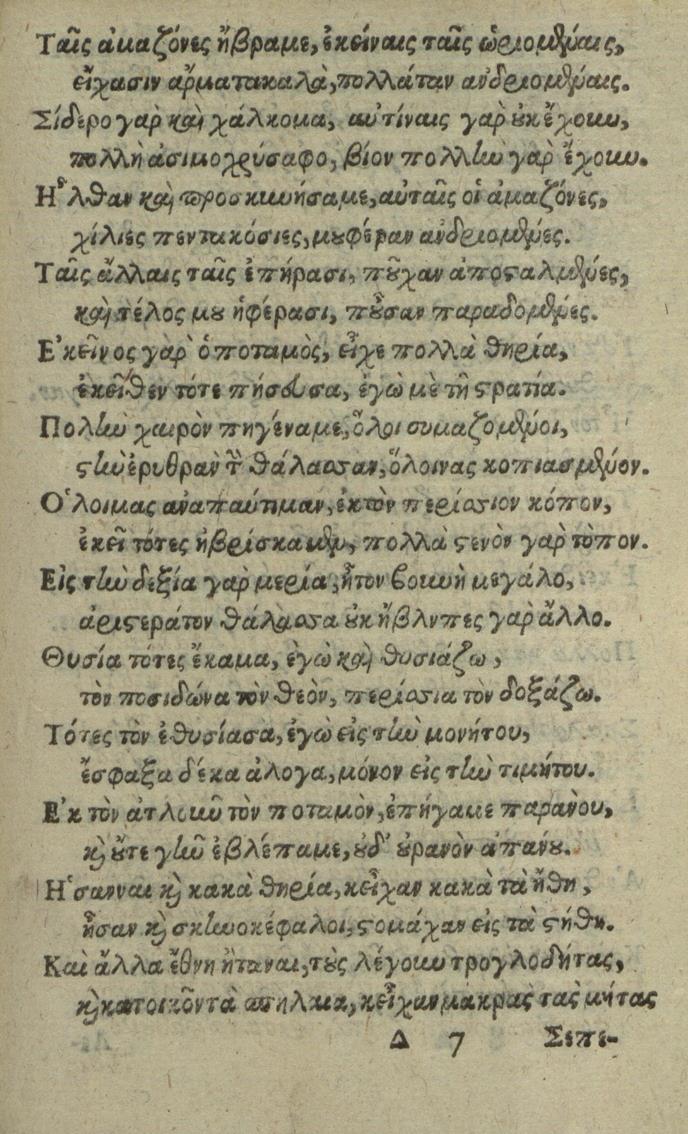 Ταῖς ἀμαζόνες ἤβραμε, ἐκείναις ταῖς ὡριομέναις,
εἴχασιν ἄρματακαλὰ, πολλάταν ἀνδριομέναις.
Σίδερο γὰρ καὶ χάλκομα, αὐτίναις γὰρ οὐκ ἔχουν,
πολλὴ ἀσιμοχρύσαφο, βίον πολλὴν γὰρ ἔχουν.
Ἦλθαν καὶ προσκυνήσαμε, αὐταῖς οἱ ἀμαζόνες,
χίλιες πεντακόσιες, μουφέραν ἀνδριομένες.
Ταῖς ἄλλαις ταῖς ἐπήρασι, ποῦχαν ἀποσταλμένες,
καὶ τέλος μου ἠφέρασι, ποῦσαν παραδομένες.
Ἐκεῖνος γὰρ ὁ ποταμὸς, εἶχε πολλὰ θηρία,
ἐκεῖθεν τότε πήσευσα, ἐγὼ μὲ τὴ στρατία.
Πολὺν χαιρὸν πηγέναμε, ὅλοι συμαζομένοι,
στὴν ἐρυθρὰν τὴν θάλασσαν, ὅλοινας κοπιασμένον.
Ὁλοιμας ἀναπαύτιμαν, ἐκτὸν περίσσιον κόπον,
ἐκεῖ τότες ἠβρίσκαμεν, πολλὰ στενὸν γὰρ τὸπον.
Εἰς τὴν δεξία γὰρ μερία, ἦτον βουνὴ μεγάλο,
ἀριστεράτον θάλασσα οὐκ ἤβληπες γὰρ ἄλλο.
Θυσία τότες ἔκαμα, ἐγὼ καὶ θυσιάζω,
τὸν ποσιδώνα τὸν θεὸν, περίσσια τὸν δοξάζω.
Τότες τὸν ἐθυσίασα, ἐγὼ εἰς τὴν μονήτου,
ἔσφαξα δέκα ἄλογα, μόνον εἰς τὴν τιμήτου.
Ἐκ τὸν ἀτλυκοῦ τὸν ποταμὸν, ἐπήγαμε παρανου,
καὶ οὔτε γὴν ἐβλέπαμε, οὐδ' οὐρανὸν ἀπανου.
Ἦσανναι καὶ κακὰ θηρία, κεἶχαν κακὰ τὰ ἤθη,
ἦσαν καὶ σκυνοκέφαλοι, στομάχαν εἰς τὰ στήθη.
Καὶ ἄλλα ἔθνη ἤταναι, τοὺς λέγουν τρογλοδήτας,
καὶ κατοικοῦντὰ σπήλαια, κεἶχαν μακρας τας μήτας
Δ 7 Σεπε-